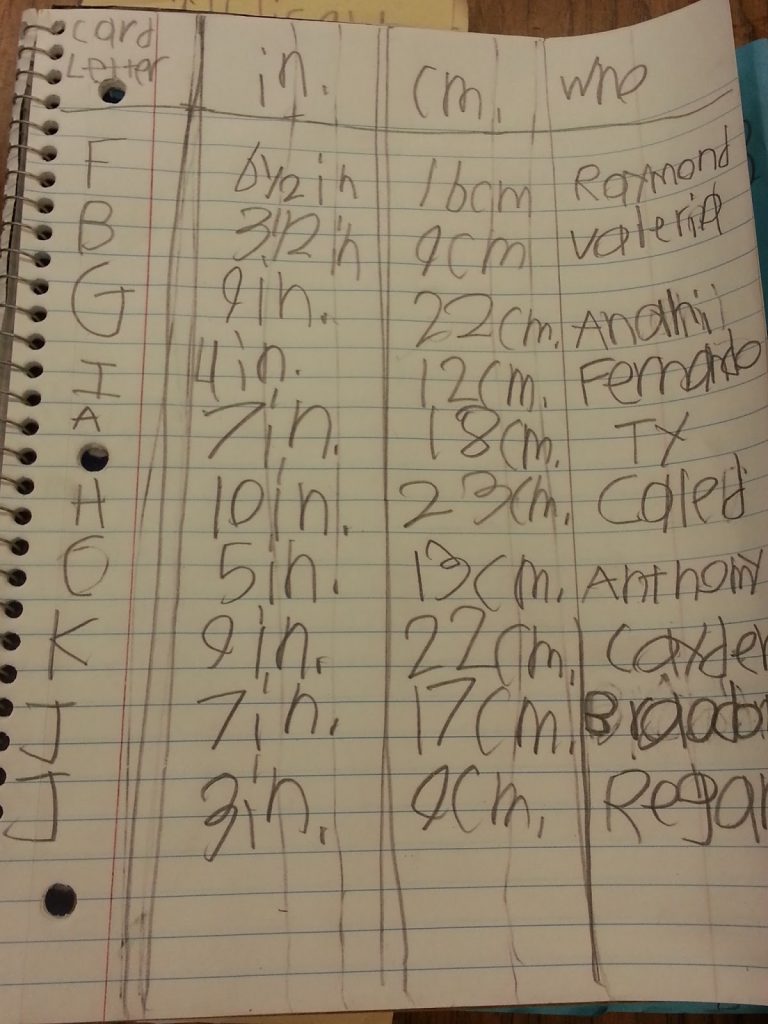 card in. cm. who
Letter
F 6 1/2 in 16cm Raymond
B 3 1/2 in 9cm Valeria
G 9in. 22cm. Anahi
I 4in. 12cm. Fernando
A 7in. 18cm. TY
H 10in. 23cm. Caleb
O 5in. 13cm. Anthony
K 9in. 22cm. Cayden
J 7in. 17cm.
J 3in. 9cm. Regan